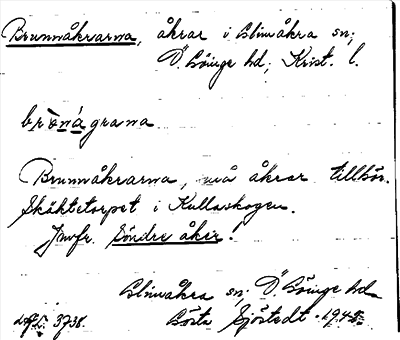 Brunnåkrarna, åkrar i Glimåkra sn;
Ö. Göinge hd; Krist. l.
brònágrana
Brunnåkrarna, små åkrar tillhör.
Skäktetorpet i Kullaskogen.
Jmfr. Söndre åker!
Glimåkra sn; Ö. Göinge hd
3738. Gösta Sjöstedt. 1945